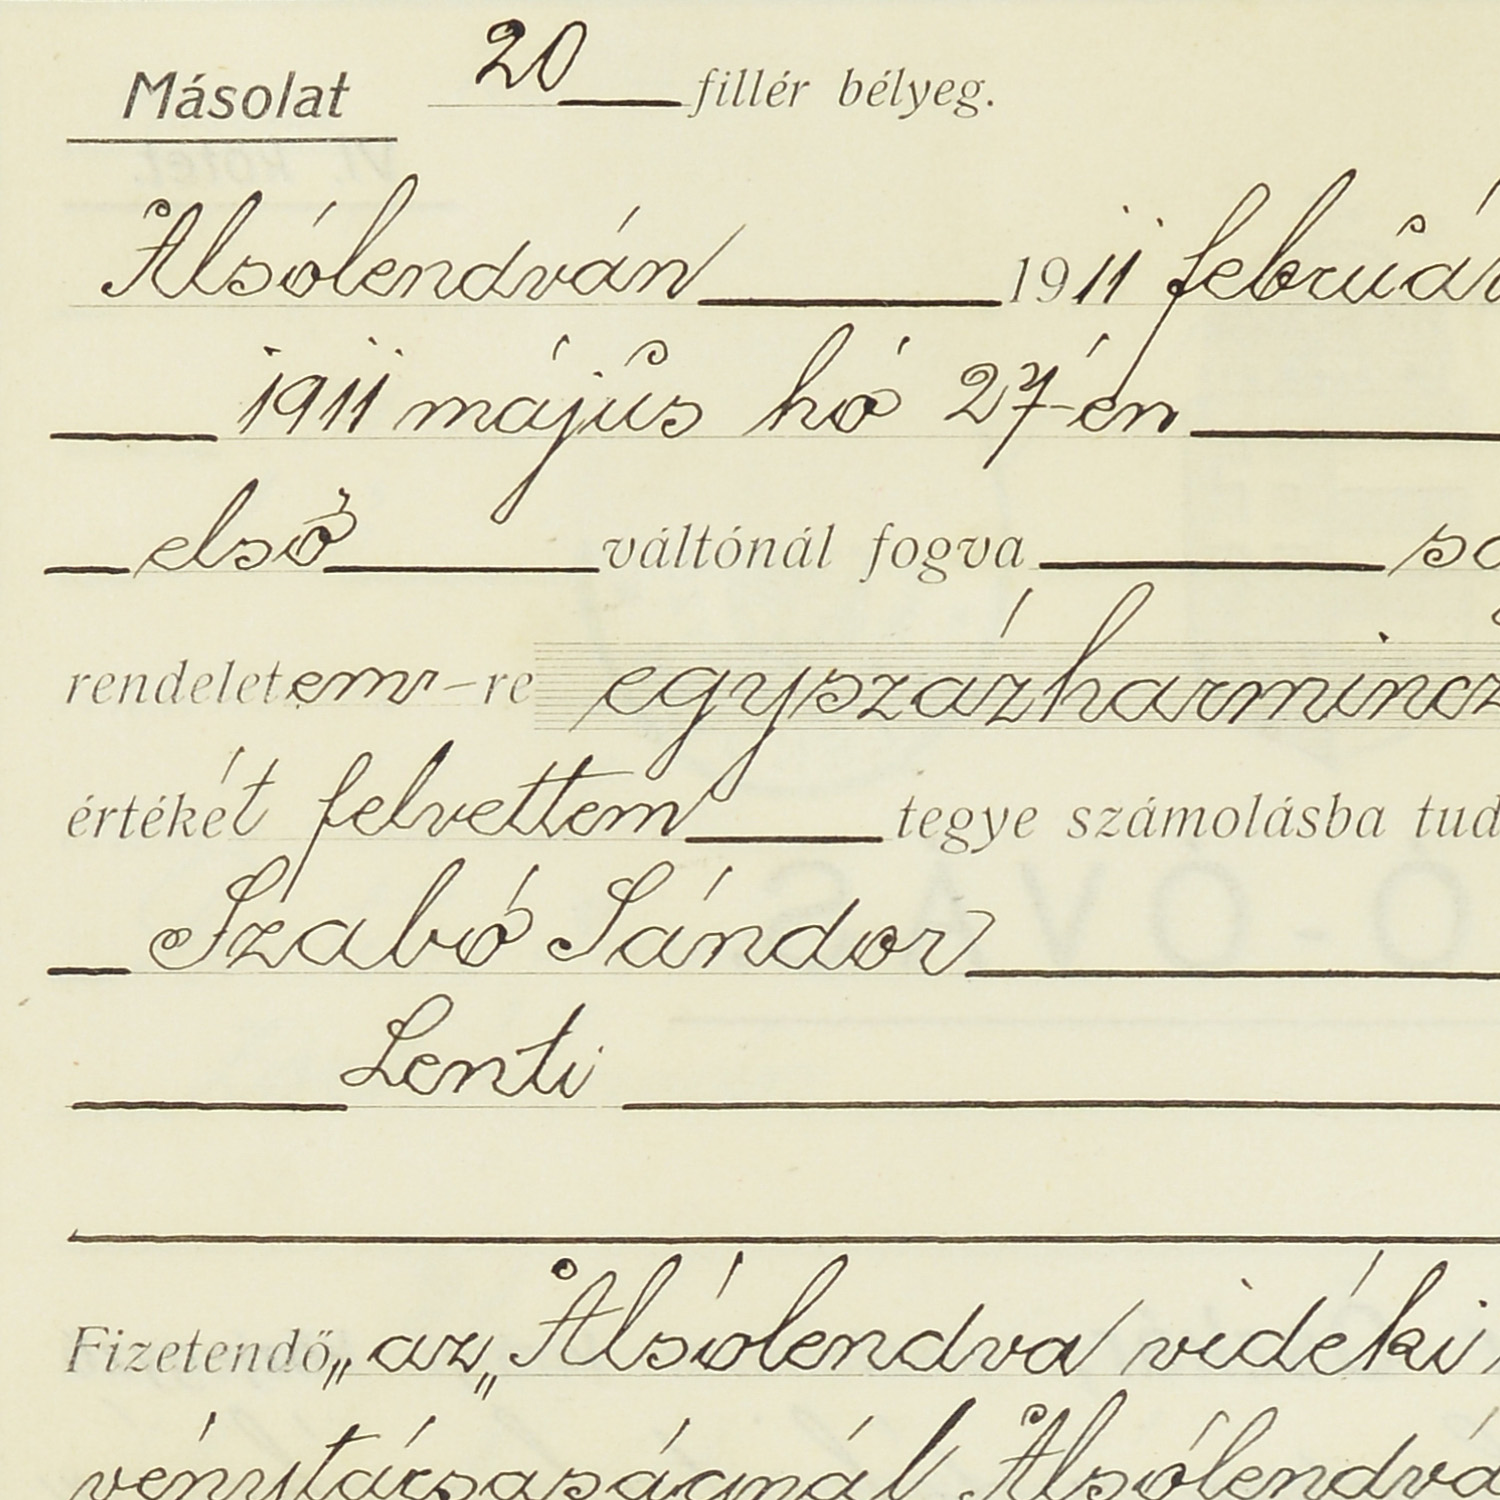 Másolat 20 fillér bélyeg.
Alsólendván 1911 február
1911 május hó 27-én
első váltónál fogva
rendeletem-re egyszázharmincz
értékét felvettem tegye számolásba tud
Szabó Sándor
Lenti
Fizetendő „az „Alsólendva vidéki
vénytársaságnál Alsólendvá